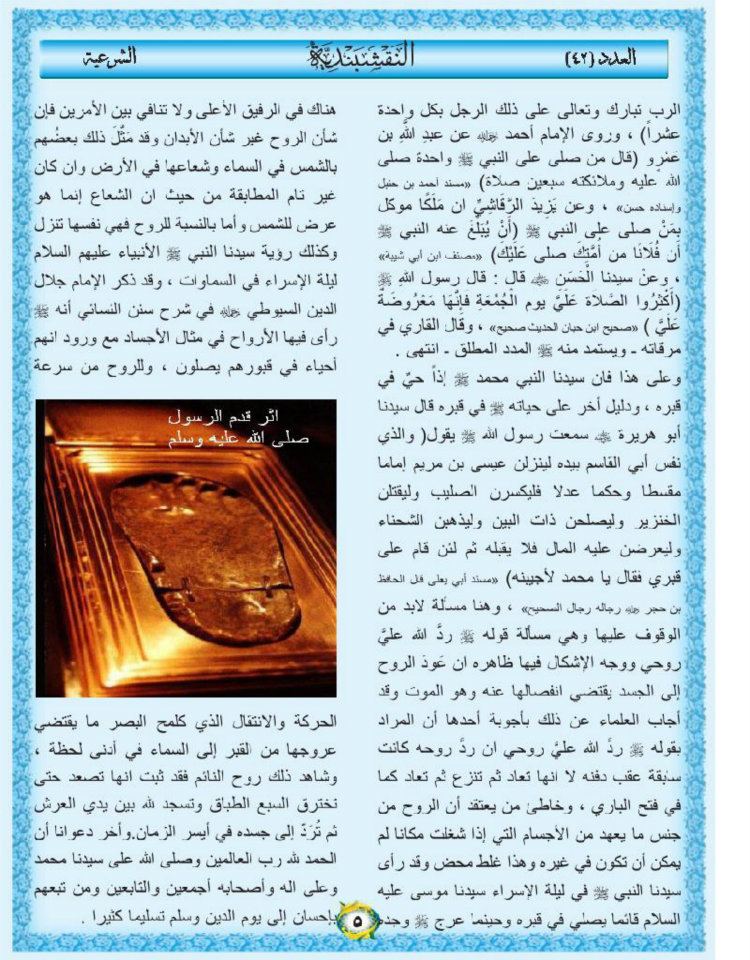 العدد (٤٢)
النقشبندية
الشرعية
الرب تبارك وتعالى على ذلك الرجل بكل واحدة
عشراً) ، وروى الإمام أحمد ﵁ عن عبدِ اللَّهِ بن
عَمْرٍو (قال من صلى على النبي ﷺ واحدة صلى
الله عليه وملائكته سبعين صلاة) «مسند أحمد بن حنبل
وإسناده حسن» ، وعن يَزِيدَ الرَّقَاشِيِّ ان مَلَكًا موكل
بمَنْ صلى على النبي ﷺ (أَنْ يُبَلِّغَ عنه النبي ﷺ
أن فُلَانًا من أُمَّتِكَ صلى عَلَيْكَ) «مصنف ابن أبي شيبة»
، وعنْ سيدنا الْحَسَنِ ﵁ قال : قال رسول الله ﷺ
(أَكْثِرُوا الصَّلاَةَ عَلَيَّ يوم الْجُمُعَةِ فإنَّهَا مَعْرُوضَةٌ
عَلَيَّ ) «صحيح ابن حبان الحديث صحيح» ، وقال القاري في
مرقاته ـ ويستمد منه ﷺ المدد المطلق ـ انتهى .
وعلى هذا فان سيدنا النبي محمد ﷺ إذاً حيٌ في
قبره ، ودليل أخر على حياته ﷺ في قبره قال سيدنا
أبو هريرة ﵁ سمعت رسول الله ﷺ يقول( والذي
نفس أبي القاسم بيده لينزلن عيسى بن مريم إماما
مقسطا وحكما عدلا فليكسرن الصليب وليقتلن
الخنزير وليصلحن ذات البين وليذهبن الشحناء
وليعرضن عليه المال فلا يقبله ثم لئن قام على
قبري فقال يا محمد لأجيبنه) «مسند أبي يعلى قال الحافظ
بن حجر ﵁ رجاله رجال الصحيح» ، وهنا مسألة لابد من
الوقوف عليها وهي مسألة قوله ﷺ ردَّ الله عليَّ
روحي ووجه الإشكال فيها ظاهره ان عَودَ الروح
إلى الجسد يقتضي انفصالها عنه وهو الموت وقد
أجاب العلماء عن ذلك بأجوبة أحدها أن المراد
بقوله ﷺ ردَّ الله عليَّ روحي ان ردَّ روحه كانت
سابقة عقب دفنه لا انها تعاد ثم تنزع ثم تعاد كما
في فتح الباري ، وخاطئ من يعتقد أن الروح من
جنس ما يعهد من الأجسام التي إذا شغلت مكانا لم
يمكن أن تكون في غيره وهذا غلط محض وقد رأى
سيدنا النبي ﷺ في ليلة الإسراء سيدنا موسى عليه
السلام قائما يصلي في قبره وحينما عرج ﷺ وجده
هناك في الرفيق الأعلى ولا تنافي بين الأمرين فإن
شأن الروح غير شأن الأبدان وقد مَثَّلَ ذلك بعضُهم
بالشمس في السماء وشعاعها في الأرض وان كان
غير تام المطابقة من حيث ان الشعاع إنما هو
عرض للشمس وأما بالنسبة للروح فهي نفسها تنزل
وكذلك رؤية سيدنا النبي ﷺ الأنبياء عليهم السلام
ليلة الإسراء في السماوات ، وقد ذكر الإمام جلال
الدين السيوطي ﵁ في شرح سنن النسائي أنه ﷺ
رأى فيها الأرواح في مثال الأجساد مع ورود انهم
أحياء في قبورهم يصلون ، وللروح من سرعة
اثر قدم الرسول
صلى الله عليه وسلم
الحركة والانتقال الذي كلمح البصر ما يقتضي
عروجها من القبر إلى السماء في أدنى لحظة ،
وشاهد ذلك روح النائم فقد ثبت انها تصعد حتى
تخترق السبع الطباق وتسجد لله بين يدي العرش
ثم تُرَدّ إلى جسده في أيسر الزمان.وأخر دعوانا أن
الحمد لله رب العالمين وصلى الله على سيدنا محمد
وعلى اله وأصحابه أجمعين والتابعين ومن تبعهم
بإحسان إلى يوم الدين وسلم تسليما كثيرا .
٥